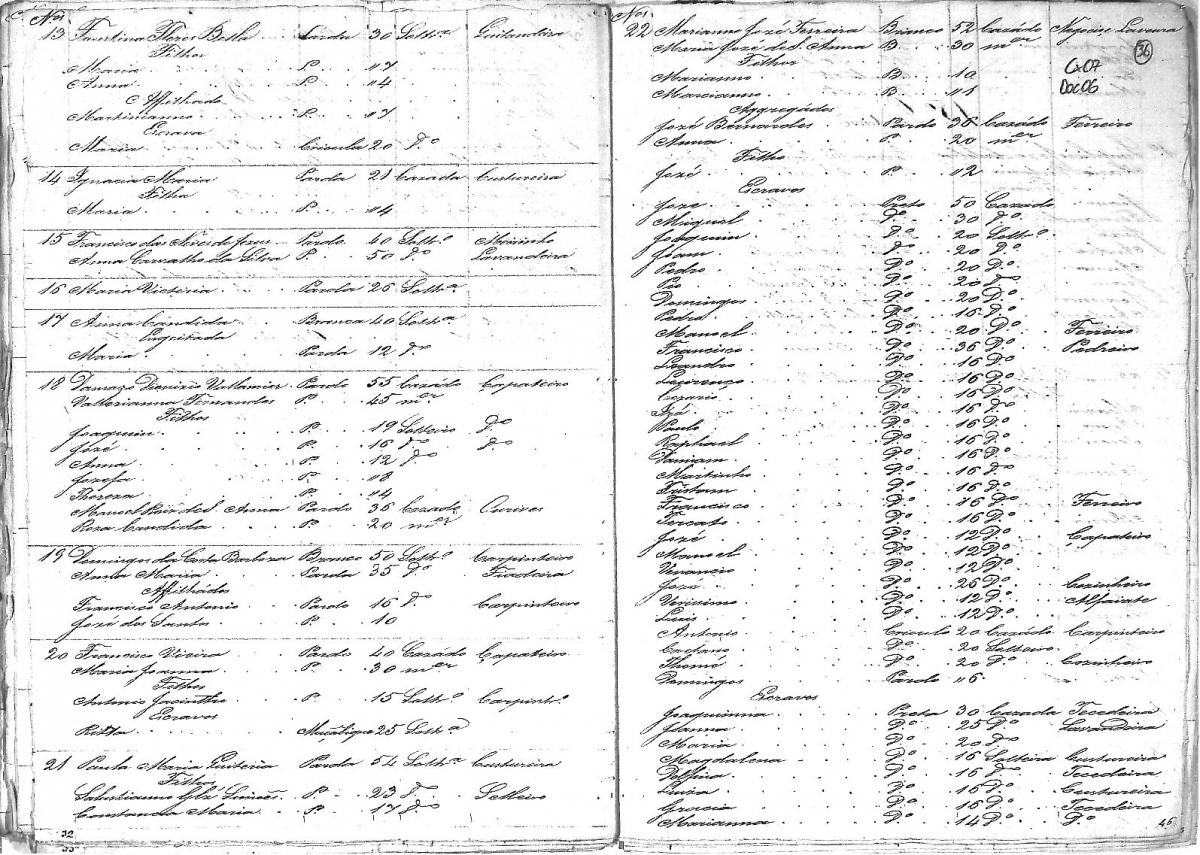 Nos
13 Faustina Flores Bella Parda 30 Solta. Quitandeira
Filhos
Maria P. 7
Anna P. 4
Affilhado
Maximianno P. 7
Escrava
Maria Crioula 20 Do
14 Ignacia Maria Parda 21 Cazada Custureira
Filha
Maria P. 4
15 Francisco das Neves de Jezus Pardo 40 Solto. Meirinho
Anna Carvalho da Silva P. 50 Do Lavandeira
16 Maria Victoria Parda 26 Solta
17 Anna Candida Branca 40 Solta
Engeitada
Maria Parda 12 Do
18 Damazo Dionizio Pardo 55 Cazado Çapateiro
Vallerianna Fernandes P. 45 mer
Filhos
Joaquim P. 19 Solteiro Do
Jozé P. 16 Do Do
Anna P. 12 Do
Jozefa P. 8
Thereza P. 4
Manoel Ruiz de S. Anna Pardo 36 Cazado Ourives
Roza Candida P. 20 mer
19 Domingos da Costa Barboza Branco 50 Solto. Carpinteiro
Anna Maria Parda 35 Do Fiadeira
Affilhados
Francisco Antonio Pardo 16 Do Carpinteiro
Jozé dos Santos P. 10
20 Francisco Vieira Pardo 40 Cazado Çapateiro
Maria Joanna P. 30 mer
Filhos
Antonio Jacintho P. 15 Solto. Carpinto.
Escravos
Ritta 25 Solta
21 Paula Maria Parda 54 Solta Custureira
Filhos
P. 23 Do Selleiro
Constancia Maria P. 17 Do
32
Nos
22 Marianno Jozé Ferreira Branco 52 Cazado Negocio Lavoura
36
Maria Jozé de S. Anna B. 30 mer
Filhos
Cx07
Marianno B. 10
Doc06
Marcianno B. 1
Aggregados
Jozé Bernardes Pardo 36 Cazado Ferreiro
Anna P. 20 mer
Filho
Jozé P. 2
Escravos
Joze Preto 50 Cazado
Miguel Do 30 Do
Joaquim Do 20 Solto.
Joam Do 20 Do
Pedro Do 20 Do
Pio Do 20 Do
Domingos Do 20 Do
Pedro Do 16 Do
Manoel Do 20 Do Ferreiro
Francisco Do 36 Do Pedreiro
Leandro Do 16 Do
Lourenço Do 16 Do
Cezario Do 16 Do
Jozé Do 16 Do
Paulo Do 16 Do
Raphael Do 16 Do
Damiam Do 16 Do
Martinho Do 16 Do
Tristam Do 16 Do
Francisco Do 16 Do Ferreiro
Torcato Do 16 Do
Jozé Do 12 Do Çapateiro
Manoel Do 12 Do
Venancio Do 12 Do
Jozé Do 26 Do Cozinheiro
Verissimo Do 12 Do Alfaiate
Luis Do 12 Do
Antonio Crioulo 20 Cazado Carpinteiro
Caetano Do 20 Solteiro
Thomé Do 20 Do Cozinheiro
Domingos Pardo 6
Escravos
Joaquinna Preta 30 Cazada Tecedeira
Joanna Do 25 Do Lavandeira
Maria Do 20 Do
Magdalena Do 16 Solteira Custureira
Delfina Do 16 Do Tecedeira
Luiza Do 16 Do Custureira
Gracia Do 16 Do Tecedeira
Marianna Do 14 Do Do
46